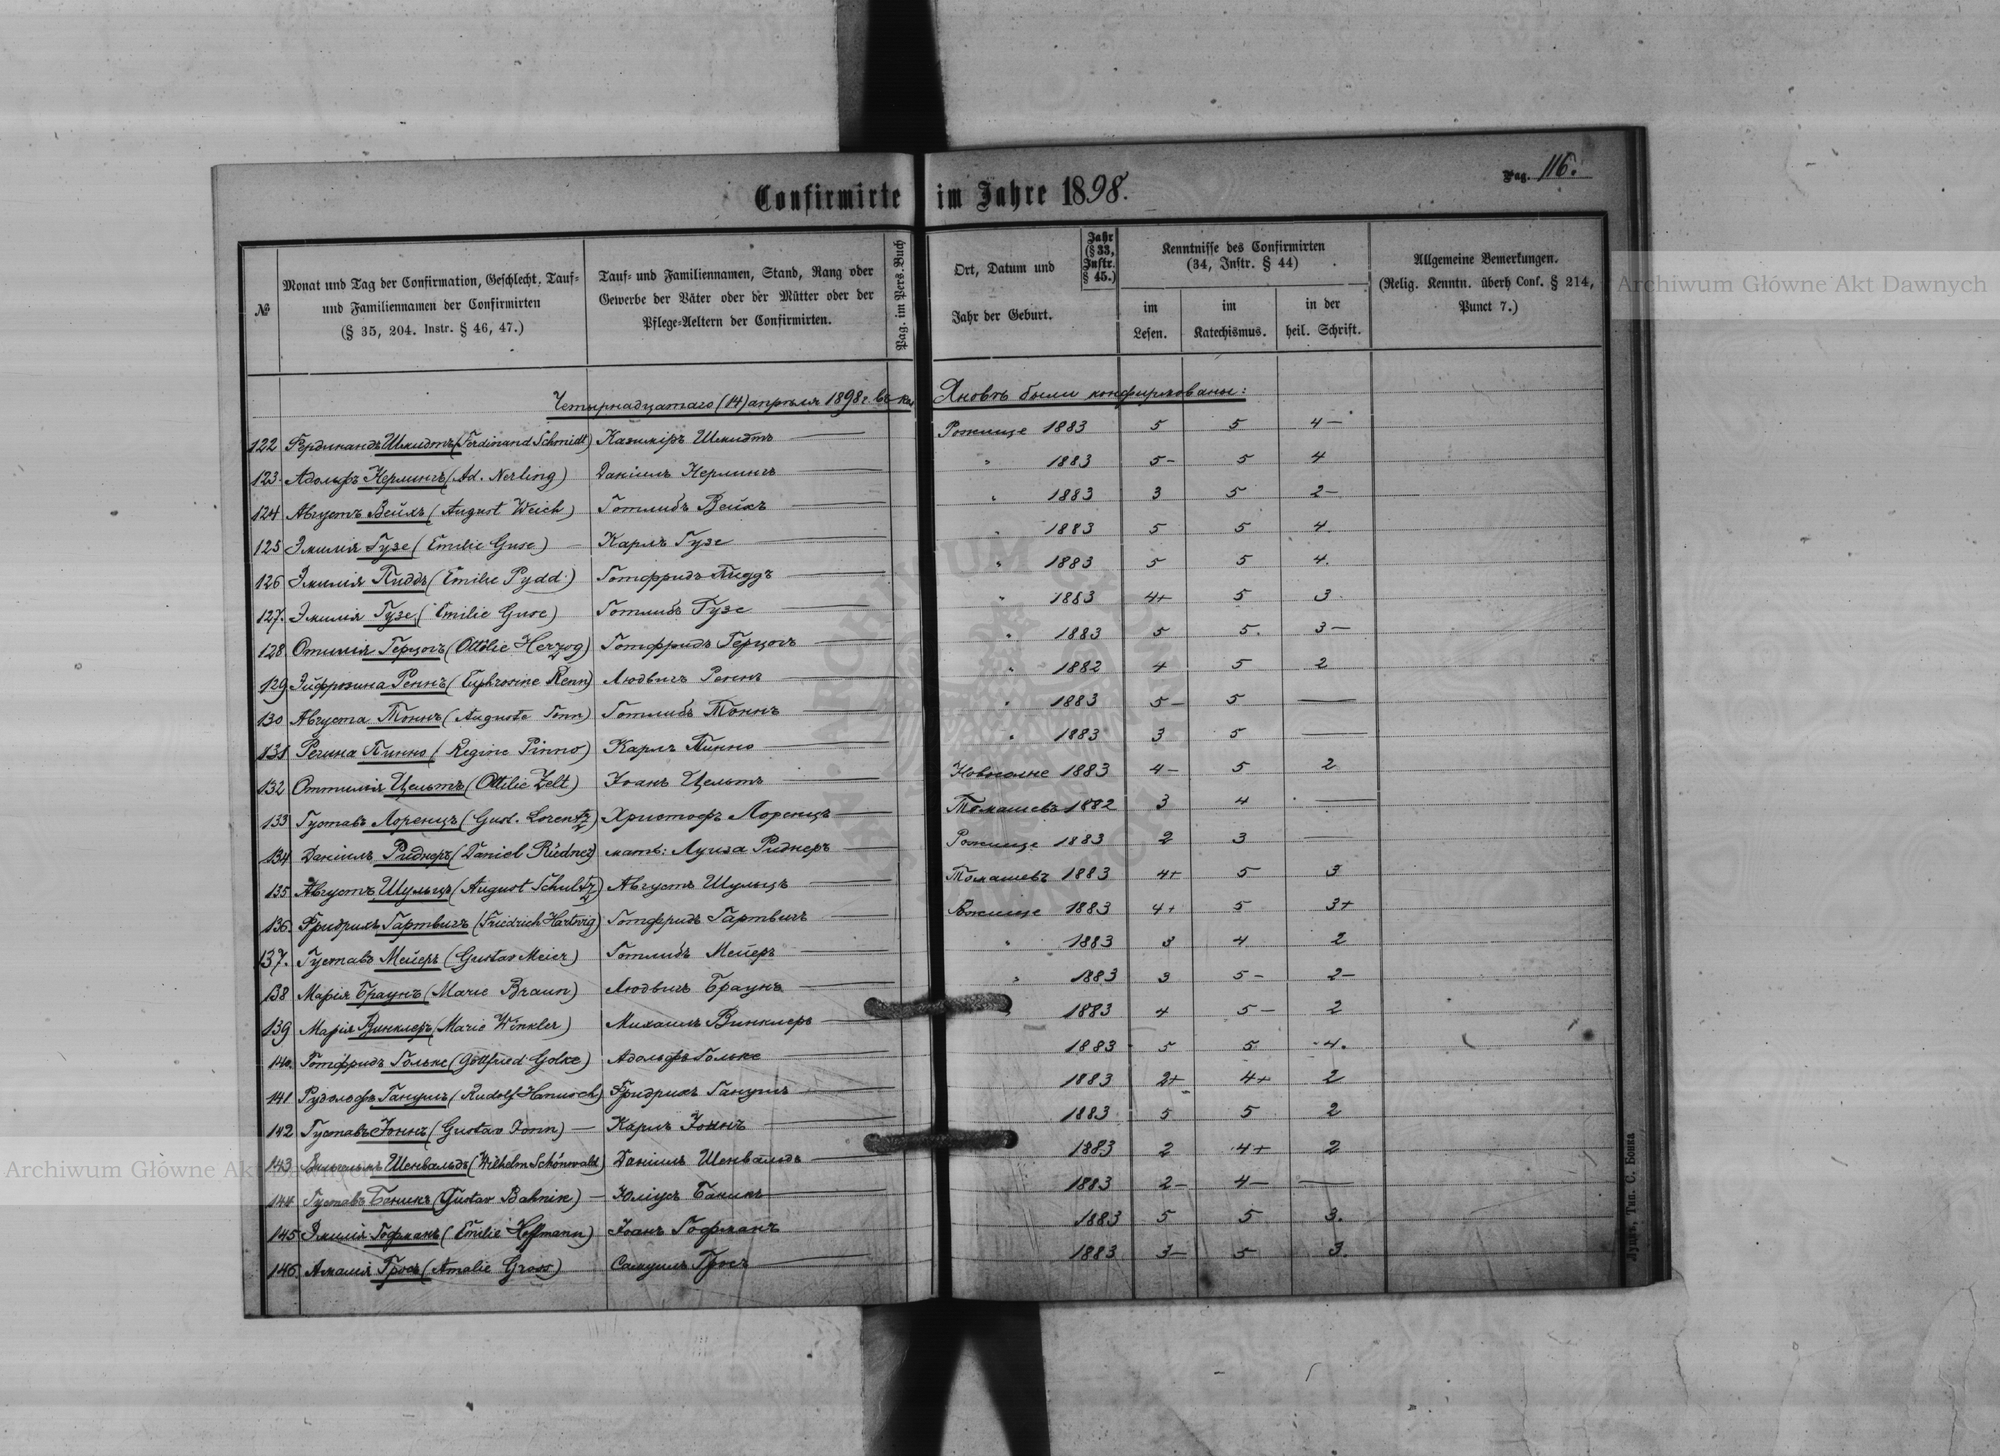 Confirmirte im Jahre 1898.
Pag. 116.
№
Monat und Tag der Confirmation, Geschlecht, Tauf-
und Familiennamen der Confirmirten
(§ 35, 204. Instr. § 46, 47.)
Tauf- und Familiennamen, Stand, Rang oder
Gewerbe der Väter oder der Mütter oder der
Pflege-Aeltern der Confirmirten.
Pag. im Pers. Buch
Ort, Datum und
Jahr der Geburt.
Jahr
(§ 33,
Instr.
§ 45.)
Kenntnisse des Confirmirten
(34, Instr. § 44)
im
Lesen.
im
Katechismus.
in der
heil. Schrift.
Allgemeine Bemerkungen.
(Relig. Kenntn. überh Conf. § 214,
Punct 7.)
Четырнадцатаго (14) апрѣля 1898 г. въ кол. Яновкѣ были конфирмованы:
122 Фердинандъ Шмидтъ (Ferdinand Schmidt) Казимiръ Шмидтъ Рожище 1883 5 5 4-
123. Адольфъ Нерлингъ (Ad. Nerling) Данiилъ Нерлингъ " 1883 5- 5 4
124 Августъ Вейхъ (August Weich) Готлибъ Вейхъ " 1883 3 5 2-
125 Эмилiя Гузе (Emilie Guse) Карлъ Гузе " 1883 5 5 4.
126 Эмилiя Пиддъ (Emilie Pydd.) Готфридъ Пиддъ " 1883 5 5 4.
127. Эмилiя Гузе (Emilie Guse) Готлибъ Гузе " 1883 4+ 5 3
128 Отилiя Герцогъ (Ottilie Herzog) Готфридъ Герцогъ " 1883 5 5. 3-
129 Эйфрозина Реннъ (Euphrosine Renn) Людвигъ Реннъ " 1882 4 5 2
130 Августа Тоннъ (Auguste Tonn) Готлибъ Тоннъ " 1883 5- 5 —
131 Регина Пинно (Regine Pinno) Карлъ Пинно " 1883 3 5 —
132 Оттилiя Цельтъ (Ottilie Zelt) Iоанъ Цельтъ 1883 4- 5 2
133 Густавъ Лоренцъ (Gust. Lorentz) Христофъ Лоренцъ Томашевъ 1882 3 4 —
134 Данiилъ Риднеръ (Daniel Riedner) мать: Луиза Риднеръ Рожище 1883 2 3 —
135 Августъ Шульцъ (August Schultz) Августъ Шульцъ Томашевъ 1883 4+ 5 3
136. Фридрихъ Гартвигъ (Friedrich Hartwig) Готфридъ Гартвигъ Рожище 1883 4+ 5 3+
137. Густавъ Мейеръ (Gustav Meier) Готлибъ Мейеръ " 1883 3 4 2
138 Марiя Браунъ (Marie Braun) Людвигъ Браунъ " 1883 3 5- 2-
139 Марiя Винклеръ (Marie Winkler) Михаилъ Винклеръ 1883 4 5- 2
140. Готфридъ Гольке (Gottfried Golke) Адольфъ Гольке 1883 5 5 4.
141 Рудольфъ Ганушъ (Rudolf Hanusch) Фридрихъ Ганушъ 1883 2+ 4+ 2
142 Густавъ Iоннъ (Gustav Jonn) Карлъ Iоннъ 1883 5 5 2
143 Вильгельмъ Шенвальдъ (Wilhelm Schönwald) Данiилъ Шенвальдъ 1883 2 4+ 2
144 Густавъ Баникъ (Gustav Bahnik) Юлiусъ Баникъ 1883 2- 4- —
145 Эмилiя Гофманъ (Emilie Hoffmann) Iоанъ Гофманъ 1883 5 5 3.
146. Амалiя Гросъ (Amalie Gross) Самуилъ Гросъ 1883 3- 5 3.
Луцкъ, Тип. С. Бонка
Archiwum Główne Akt Dawnych
Archiwum Główne Akt